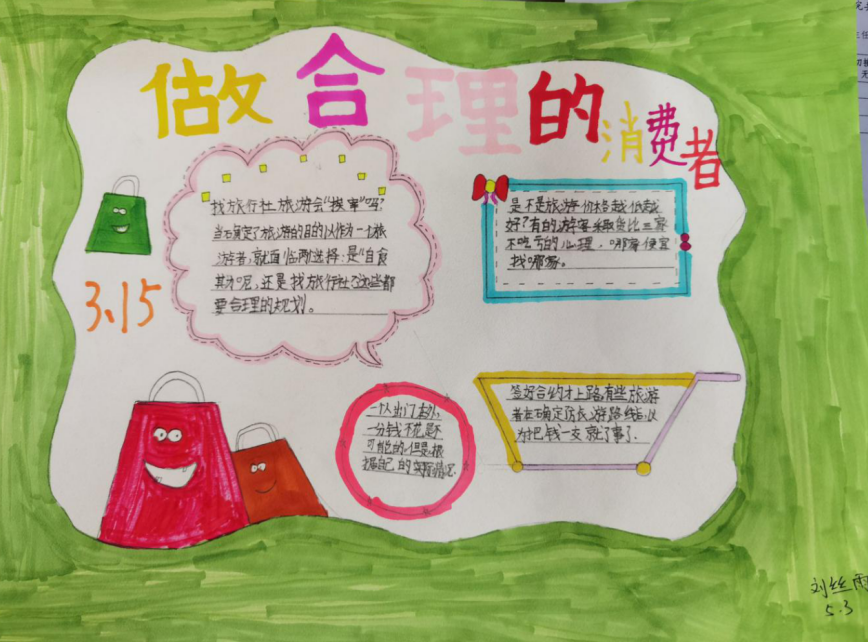 做合理的消费者
3.15
找旅行社旅游会"挨宰"吗?
当确定了旅游的目的以作为一士旅
游者,就面临两选择:是"自食
其力"呢,还是找旅行社?这些都
要合理的规划。
是不是旅游价格越低越
好?有的游客采取货比三家
不吃亏的心理,哪家便宜
找哪家。
一个人出门在外,
一分钱不花是不
可能的,但是根
据自己的实际情况
签好合约才上路,有些旅游
者在确定历长游路线后,以
为把钱一交就了事了.
刘丝雨
5.3